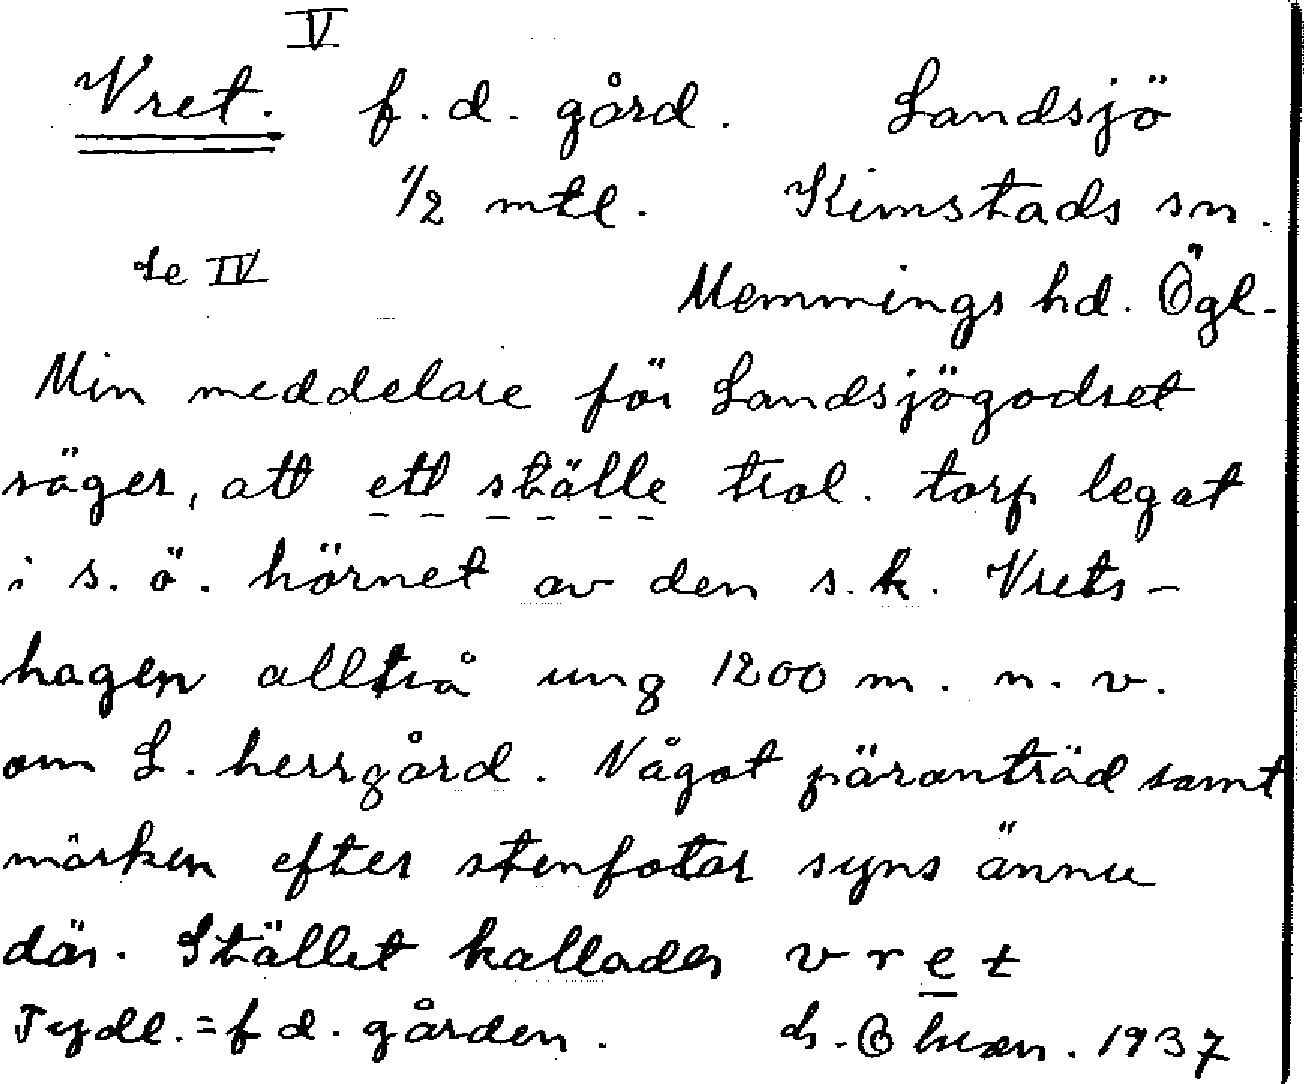 V
Vret. f. d. gård. Landsjö
1/2 mtl. Kimstads sn.
se IV
Memmings hd. Ögl.
Min meddelare för Landsjögodset
säger, att ett ställe trol. torp legat
i s. ö. hörnet av den s. k. Vrets-
hagen alltså ung 1200 m. n. v.
om L. herrgård. Något päronträd samt
märken efter stenfotar syns ännu
där. Stället kallades vret
Tydl. = f d. gården. 1937